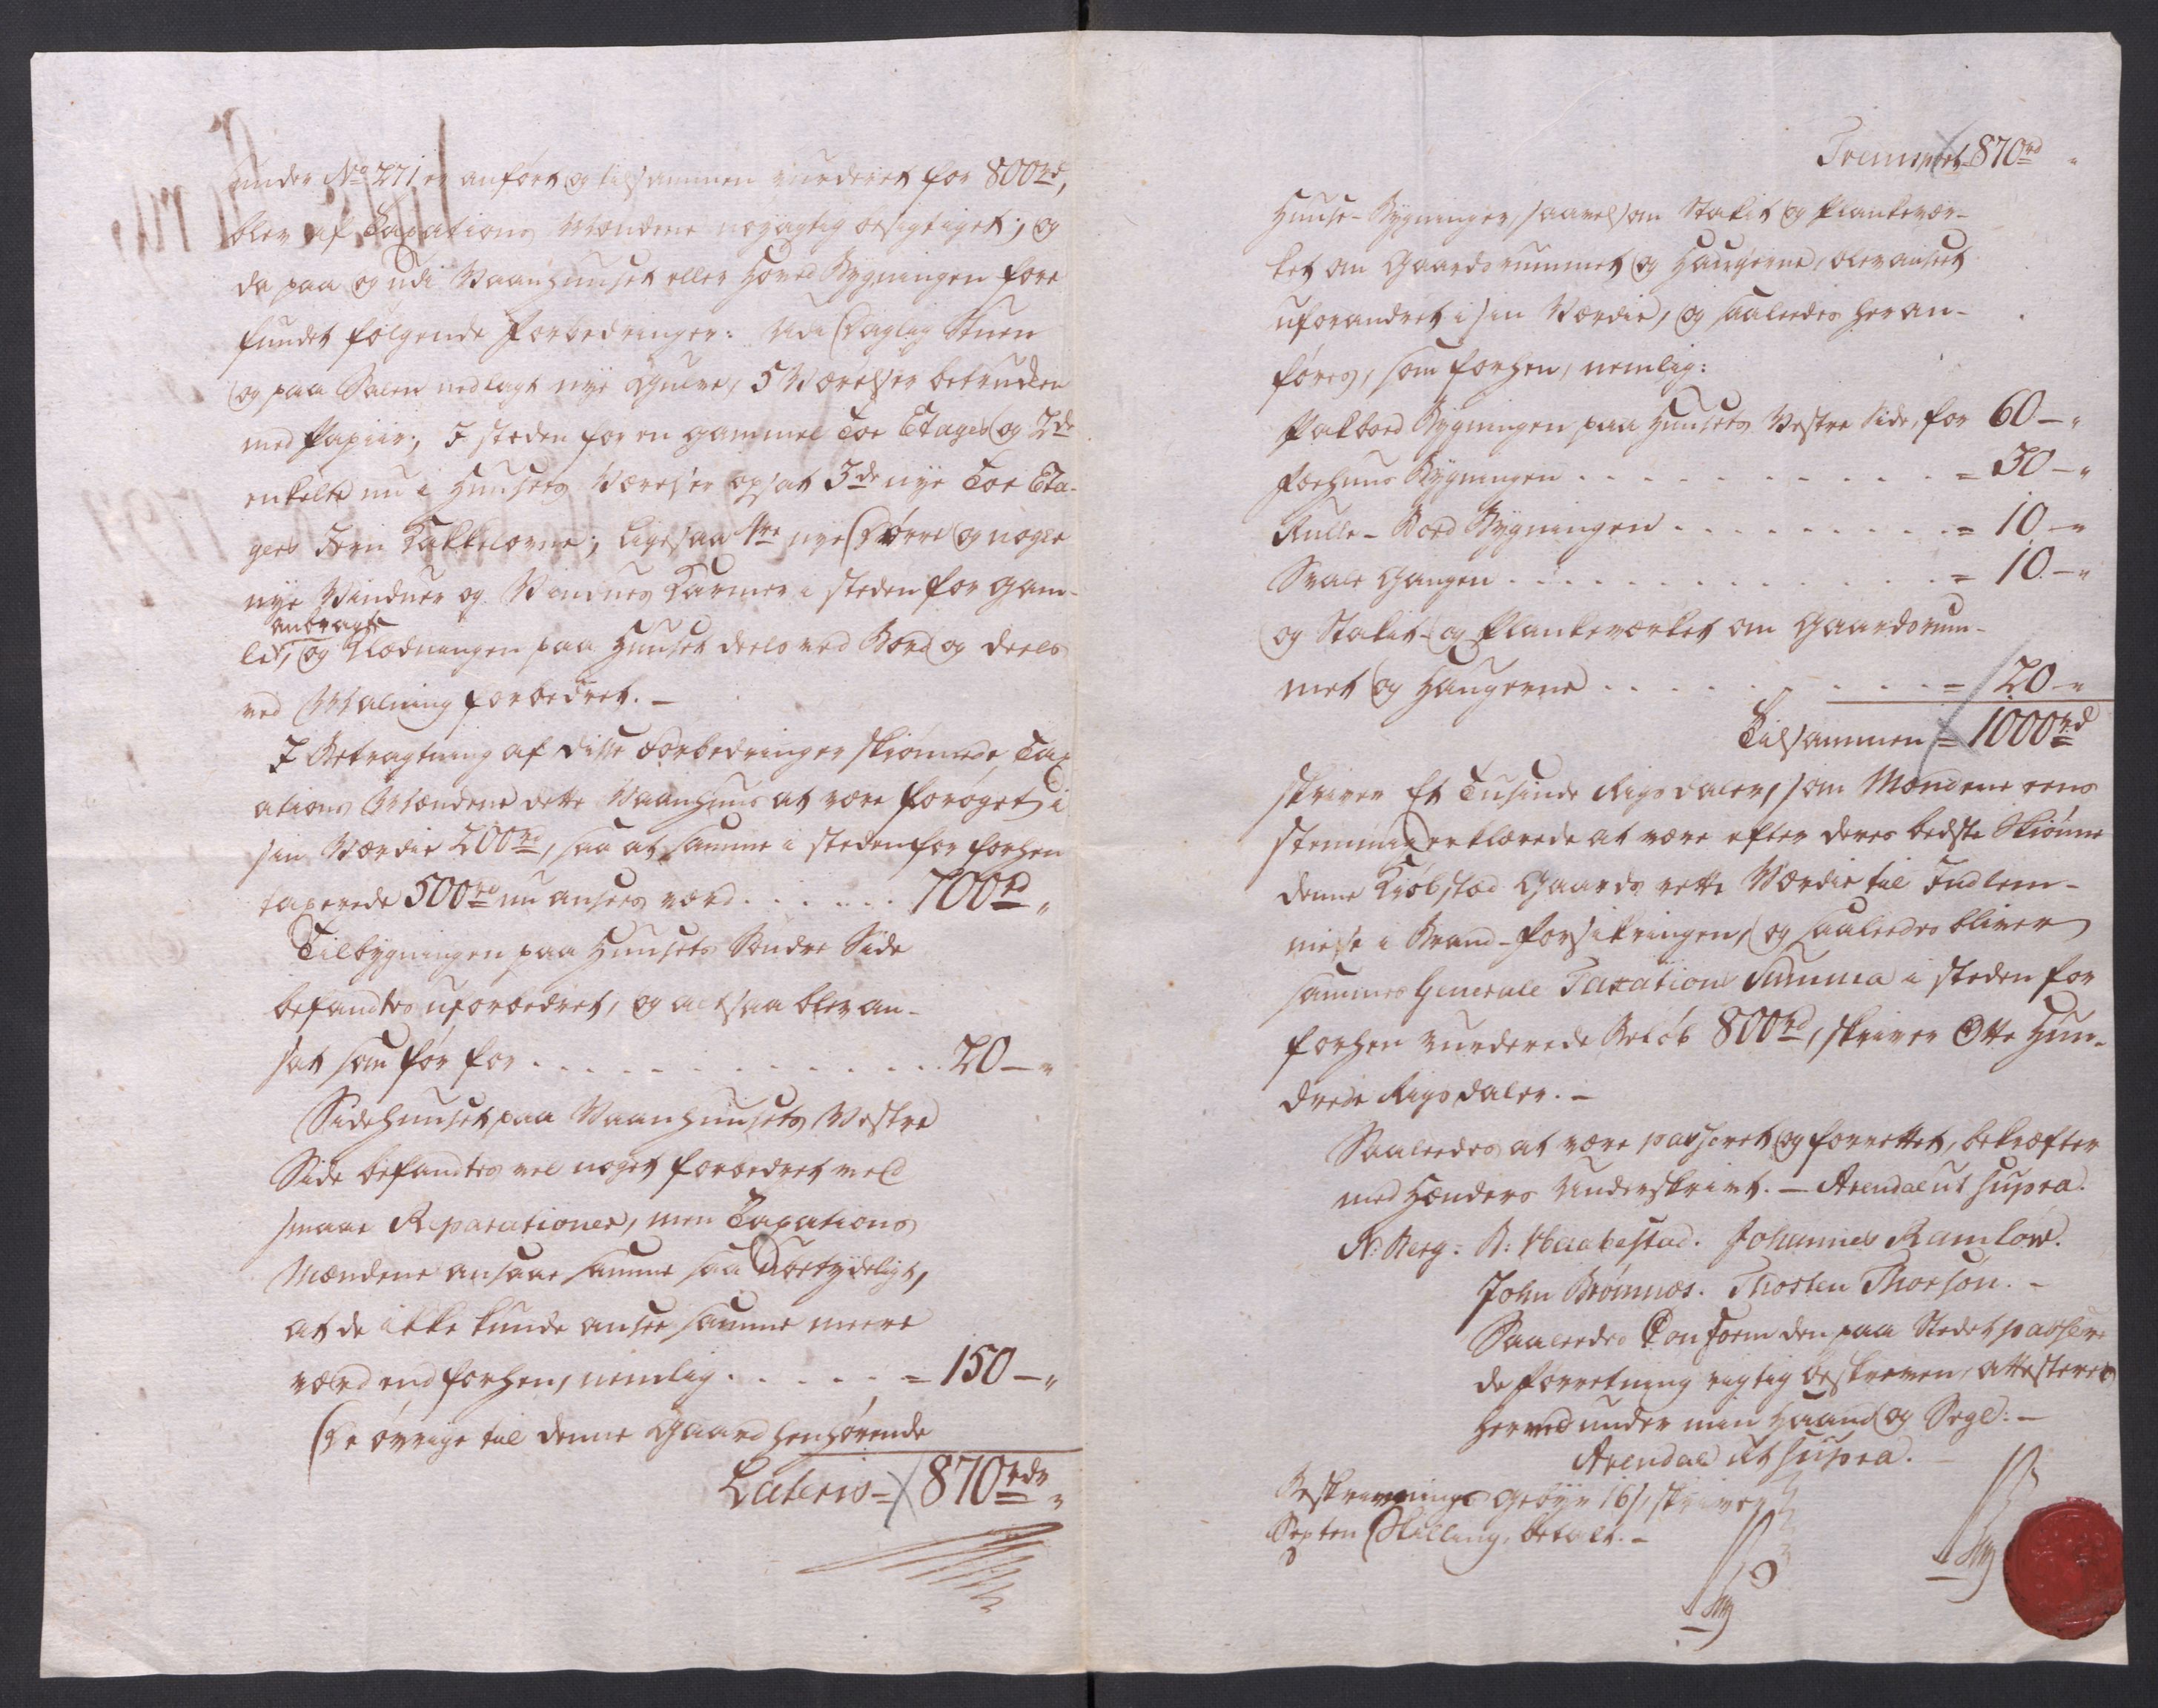 under No 271 er anført og tilsammen vurderet for 800rd,
blev af Taxations Mændene nøyagtig besigtiget; og
da paa og udi Vaanhuuset eller Hoved Bygningen fore
fundet følgende Forbedringer: Udi Daglig Stuen
og paa Salen nedlagt nye Gulve, 5 Værelser betrukken
med Papiir; I steden for en gammel Toe Etages og 2de
enkelte nu i Huusets Værelser opsat 3de nye Toe Eta-
gers Jern Kakkelovne; ligesaa 4re nye Dørre og nogle
nye Vinduer og Vindues Karmer i steden for gam-
anbragt
le, og Klædningen paa Huuset deels med Bord og deels
ved Malning forbedret. –
I Betragtning af disse Forbedringer skiønnede Tax
ations Mændene dette Vaanhuus at være forøget i
sin Værdie 200rd, saa at samme i steden for forhen
taxerede 500rd nu ansees værd . . . . . . 700rd "
Tilbygningen paa Huusets Søndre Side
befandtes uforbedret, og altsaa blev an-
sat som før for . . . . . . . . . . . . 20 – "
Sidehuuset paa Vaanhuusets Vestre
Side befandtes vel noget forbedret med
smaae Reparationer, men Taxations
Mændene ansaae samme saa ubetydeligt,
at de ikke kunde ansee samme meere
værd end forhen, nemlig . . . . . = 150 – "
De øvrige til denne Gaard henhørende
Lateris = 870rdr "
Transport 870rd "
Huuse-Bygninger, saavelsom Stakit og Plankevær-
ket om Gaardsrummet og Haugerne, blev anseet
uforandret i sin Værdie, og saaledes her an-
føres, som forhen, nemlig:
Pakbod Bygningen paa Huusets Vestre Side, for 60 – "
Fæehuus Bygningen . . . . . . . . . . = 30 – "
Rulle-Bod Bygningen . . . . . . . . . = 10 – "
Svale Gangen . . . . . . . . . . . . = 10 – "
og Stakit- og Plankeværket om Gaardsrum-
met og Haugerne . . . . . . . . . = 20 – "
Tilsammen = 1000rd
skriver Et Tusinde Rigsdaler, som Mændene eens
stemmig erklærede at være efter deres bedste Skiønne
denne Kiøbstad Gaards rette Værdie til Indlem-
melse i Brand-Forsikringen, og saaledes bliver
sammes Generale Taxations Summa i steden for
forhen vurderede Beløb 800rd, skriver Otte Hun-
drede Rigsdaler. –
Saaledes at være passeret og forrettet, bekræfter
med Hænders Underskrivt. – Arendal ut supra.
N: Berg. B: Haabestad. Johannes Ramlow.
John Brømnæs. Thosten Thorson. –
Saaledes Conform den paa Stedet passere
de Forretning rigtig beskreven, attesteres
herved under min Haand og Segl: –
Arendal ut supra.
Beskrivnings Gebyr 16 s, skriver
Sexten Skilling, betalt. –